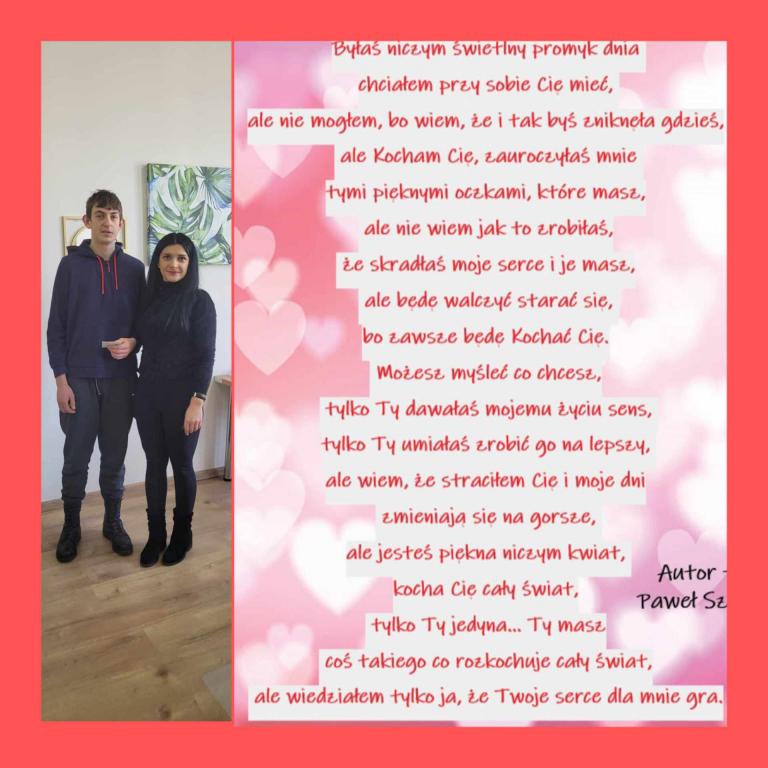 Byłaś niczym świetlny promyk dnia
chciałem przy sobie Cię mieć,
ale nie mogłem, bo wiem, że i tak byś zniknęła gdzieś,
ale Kocham Cię, zauroczyłaś mnie
tymi pięknymi oczkami, które masz,
ale nie wiem jak to zrobiłaś,
że skradłaś moje serce i je masz,
ale będę walczyć starać się,
bo zawsze będę Kochać Cię.
Możesz myśleć co chcesz,
tylko Ty dawałaś mojemu życiu sens,
tylko Ty umiałaś zrobić go na lepszy,
ale wiem, że straciłem Cię i moje dni
zmieniają się na gorsze,
ale jesteś piękna niczym kwiat,
kocha Cię cały świat,
tylko Ty jedyna... Ty masz
coś takiego co rozkochuje cały świat,
ale wiedziałem tylko ja, że Twoje serce dla mnie gra.
Autor -
Paweł Sz